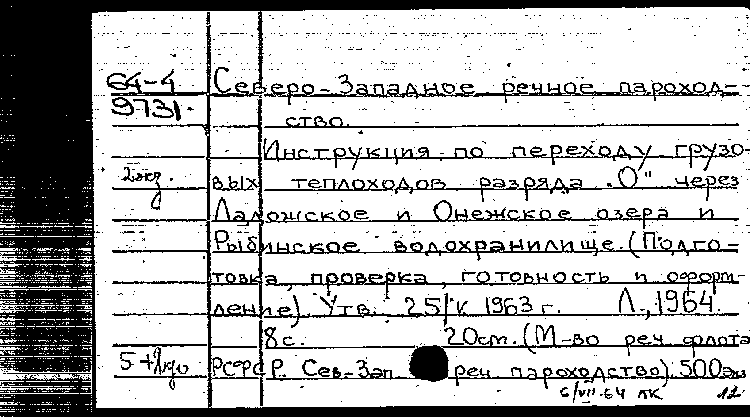 64-4 Северо-Западное речное пароход-
9731. ство.
Инструкция по переходу грузо-
2экз. вых теплоходов разряда "О" через
Ладожское и Онежское озера и
Рыбинское водохранилище. (Подго-
товка, проверка, готовность и оформ-
ление). Утв. 25/X 1963 г. Л., 1964.
8с. 20см. (М-во реч. флота
РСФСР. Сев.-Зап. реч. пароходство). 500 экз
6/VII-64 ЛК 12